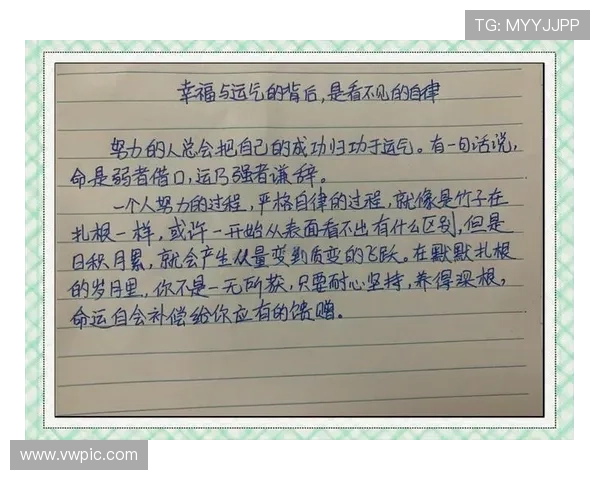 TG: MYYJJPP
幸福与运气的背后，是看不见的自律
努力的人总会把自己的成功归功于运气。有一句话说，
命是弱者借口，运乃强者谦辞。
一个人努力的过程，严格自律的过程，就像是竹子在
扎根一样，或许一开始从表面看不出有什么区别，但是
日积月累，就会产生从量变到质变的飞跃。在默默扎根
的岁月里，你不是一无所获，只要耐心坚持，养得深根，
命运自会补偿给你应有的馈赠。
www.vwpic.com